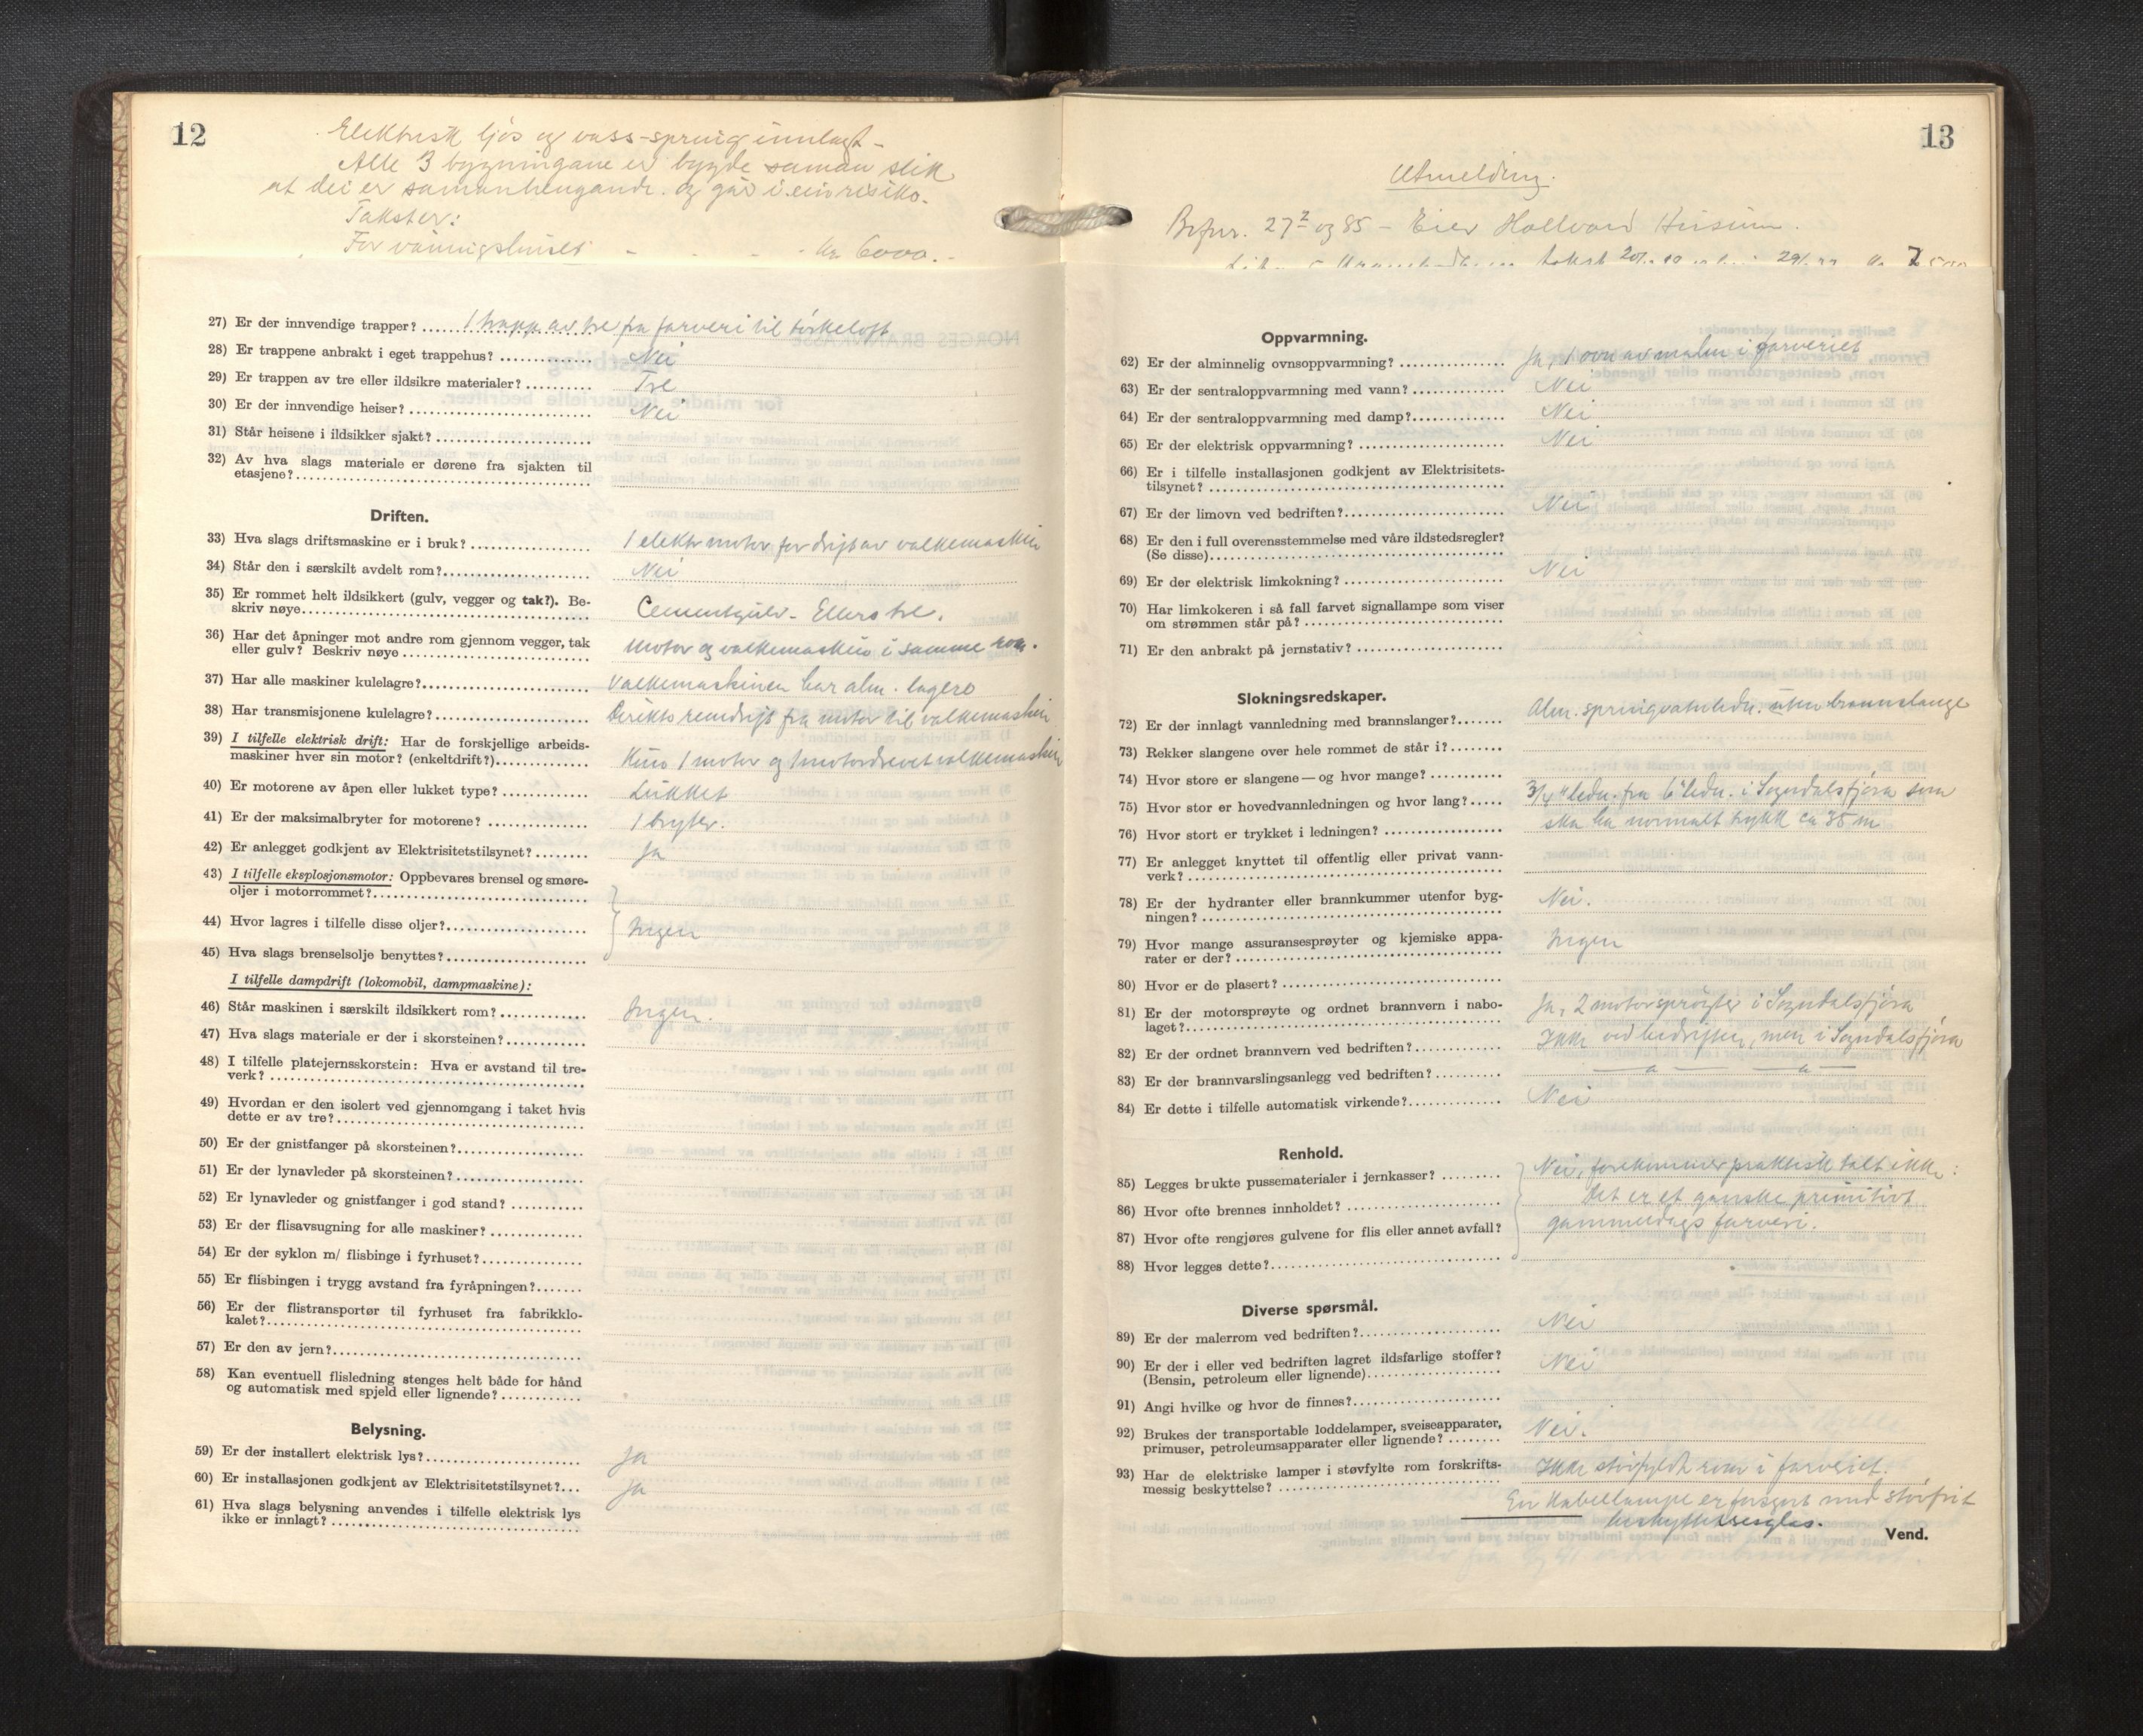 12
Elektrisk ljos og vass-spring innlagt -
Alle 3 bygningane er bygde saman slik
at dei er samanhengande. og går i ein risiko.
Takster:
For våningshuset - - - - kr 6000.-
27) Er der innvendige trapper? 1 trapp av tre fra farveri til törkeloft
28) Er trappene anbrakt i eget trappehus? Nei
29) Er trappen av tre eller ildsikre materialer? Tre
30) Er der innvendige heiser? Nei
31) Står heisene i ildsikker sjakt?
32) Av hva slags materiale er dørene fra sjakten til
etasjene?
Driften.
33) Hva slags driftsmaskine er i bruk? 1 elektr motor for drift av valkemaskin
34) Står den i særskilt avdelt rom? Nei
35) Er rommet helt ildsikkert (gulv, vegger og tak?). Be-
skriv nøye Cementgulv - Ellers tre.
36) Har det åpninger mot andre rom gjennom vegger, tak
eller gulv? Beskriv nøye Motor og valkemaskin i samme rom.
37) Har alle maskiner kulelagre? Valkemaskinen har alm. lagere
38) Har transmisjonene kulelagre? Direkte remdrift fra motor til valkemaskin
39) I tilfelle elektrisk drift: Har de forskjellige arbeids-
maskiner hver sin motor? (enkeltdrift?) Kun 1 motor og 1 motordrevet valkemaskin
40) Er motorene av åpen eller lukket type? Lukket
41) Er der maksimalbryter for motorene? 1 bryter.
42) Er anlegget godkjent av Elektrisitetstilsynet? Ja
43) I tilfelle eksplosjonsmotor: Oppbevares brensel og smøre-
oljer i motorrommet?
44) Hvor lagres i tilfelle disse oljer? Ingen
45) Hva slags brenselsolje benyttes?
I tilfelle dampdrift (lokomobil, dampmaskine):
46) Står maskinen i særskilt ildsikkert rom? Ingen.
47) Hva slags materiale er der i skorsteinen?
48) I tilfelle platejernsskorstein: Hva er avstand til tre-
verk?
49) Hvordan er den isolert ved gjennomgang i taket hvis
dette er av tre?
50) Er der gnistfanger på skorsteinen?
51) Er der lynavleder på skorsteinen?
52) Er lynavleder og gnistfanger i god stand?
53) Er der flisavsugning for alle maskiner?
54) Er der syklon m/ flisbinge i fyrhuset?
55) Er flisbingen i trygg avstand fra fyråpningen?
56) Er der flistransportør til fyrhuset fra fabrikklo-
kalet?
57) Er den av jern?
58) Kan eventuell flisledning stenges helt både for hånd
og automatisk med spjeld eller lignende?
Belysning.
59) Er der installert elektrisk lys? Ja
60) Er installasjonen godkjent av Elektrisitetstilsynet? Ja
61) Hva slags belysning anvendes i tilfelle elektrisk lys
ikke er innlagt?
13
Utmelding.
Brfnr. 27² og 85 - Eier Hallvard Husum.
Oppvarmning.
62) Er der alminnelig ovnsoppvarmning? Ja, 1 ovn av malm i farveriet
63) Er der sentraloppvarmning med vann? Nei
64) Er der sentraloppvarmning med damp? Nei
65) Er der elektrisk oppvarmning? Nei
66) Er i tilfelle installasjonen godkjent av Elektrisitets-
tilsynet?
67) Er der limovn ved bedriften? Nei
68) Er den i full overensstemmelse med våre ildstedsregler?
(Se disse)
69) Er der elektrisk limkokning? Nei
70) Har limkokeren i så fall farvet signallampe som viser
om strømmen står på?
71) Er den anbrakt på jernstativ?
Slokningsredskaper.
72) Er der innlagt vannledning med brannslanger? Alm. springvatnledn. uten brannslange
73) Rekker slangene over hele rommet de står i?
74) Hvor store er slangene — og hvor mange?
75) Hvor stor er hovedvannledningen og hvor lang? 3/4" ledn. fra 6" ledn. i Sogndalsfjöra som
76) Hvor stort er trykket i ledningen? ska ha normalt trykk ca 35 m
77) Er anlegget knyttet til offentlig eller privat vann-
verk?
78) Er der hydranter eller brannkummer utenfor byg-
ningen? Nei.
79) Hvor mange assuransesprøyter og kjemiske appa-
rater er der? Ingen
80) Hvor er de plasert?
81) Er der motorsprøyte og ordnet brannvern i nabo-
laget? Ja, 2 motorspröyter i Sogndalsfjöra
82) Er der ordnet brannvern ved bedriften? Ikke ved bedriften, men i Sogndalsfjöra
83) Er der brannvarslingsanlegg ved bedriften? — a — — a —
84) Er dette i tilfelle automatisk virkende? Nei
Renhold.
85) Legges brukte pussematerialer i jernkasser? Nei, forekommer praktisk talt ikke:
86) Hvor ofte brennes innholdet? Det er et ganske primitivt
87) Hvor ofte rengjøres gulvene for flis eller annet avfall? gammeldags farveri.
88) Hvor legges dette?
Diverse spørsmål.
89) Er der malerrom ved bedriften? Nei
90) Er der i eller ved bedriften lagret ildsfarlige stoffer?
(Bensin, petroleum eller lignende) Nei
91) Angi hvilke og hvor de finnes?
92) Brukes der transportable loddelamper, sveiseapparater,
primuser, petroleumsapparater eller lignende? Nei.
93) Har de elektriske lamper i støvfylte rom forskrifts-
messig beskyttelse? Ikke stövfyldte rom i farveriet.
En kabellampe er forsynt med stövfrit
beskyttelsesglas.
Vend.